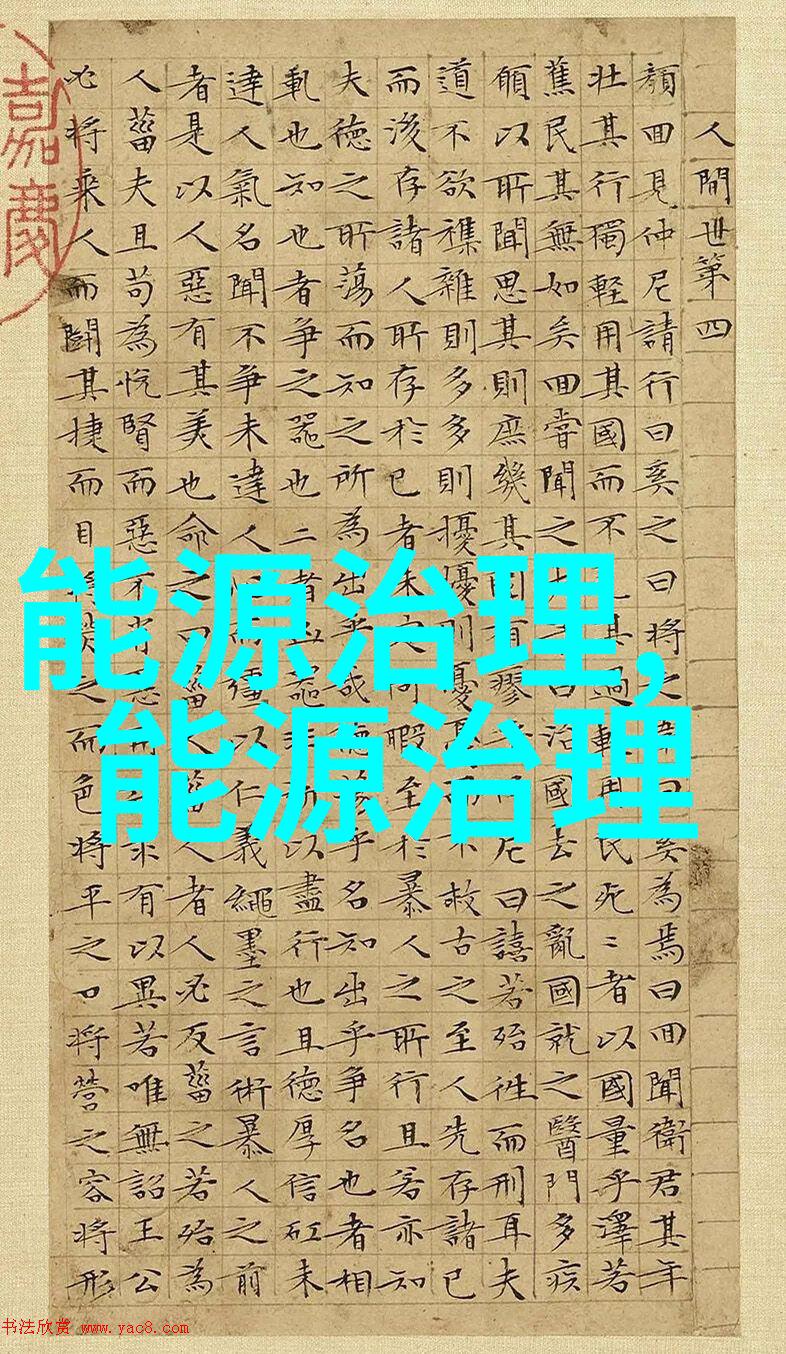 人間世第四
顏回見仲尼請行曰奚之曰將之衛曰奚為焉曰回聞衛君其年
壯其行獨輕用其國而不其過輕用民死〻者以國量乎澤若
蕉民其無如矣回嘗聞之曰治國去之亂國就之醫門多疾
願以所聞思其則庶幾其國有瘳乎尼曰譆若殆往而刑耳夫
道不欲襍雜則多多則擾擾則憂憂而不救古之至人先存諸已
而後存諸人所存於已者未定何暇至於暴人之所行且若亦知
夫德之所蕩而知之所為出乎哉德蕩乎名知出乎爭名也者相
軋也知也者爭之器也二者凶器非所以盡行也且德厚信矼未
達人氣名聞不爭未達人心而彊以仁義繩墨之言術暴人之前
者是以人惡有其美也命之曰菑人菑人者人必反菑之若殆為
人菑夫且苟為悅賢而惡不肖惡用求有以異若唯無詔王公
必將乘人而鬭其捷而目將熒之而色將平之口將營之容將形
嘉慶
能源治理,
能源治理
书法欣赏 www.yac8.com